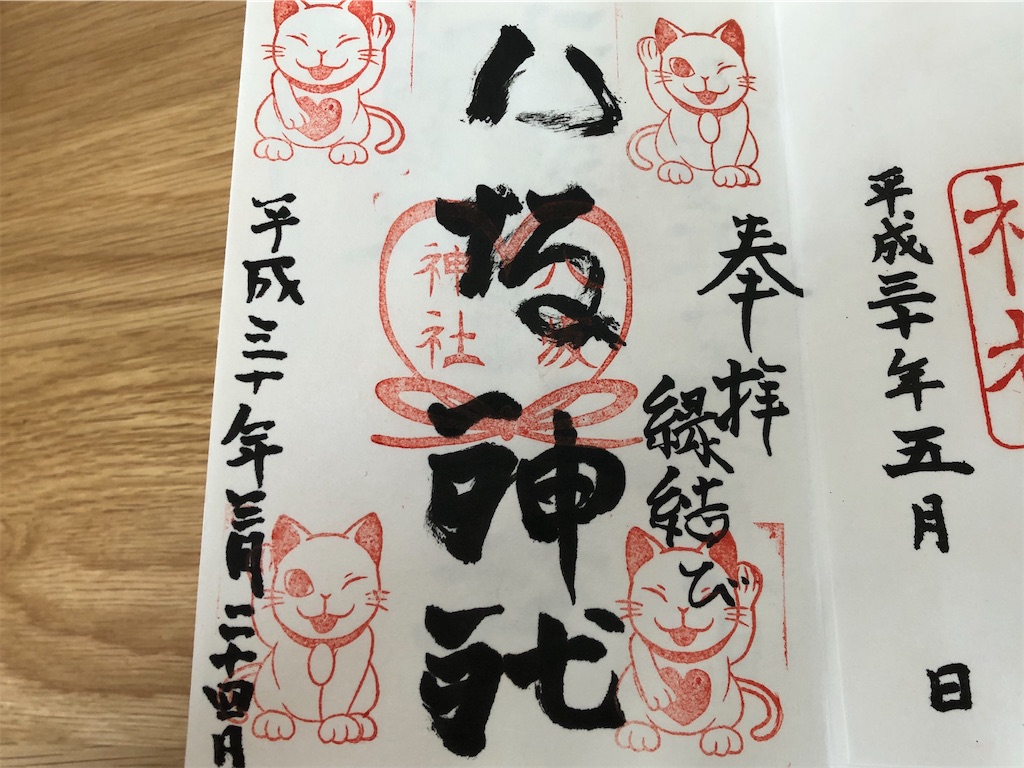 平成三十年五月 日
奉拝
縁結び
八坂神社
八坂
神社
平成三十年三月二十四月